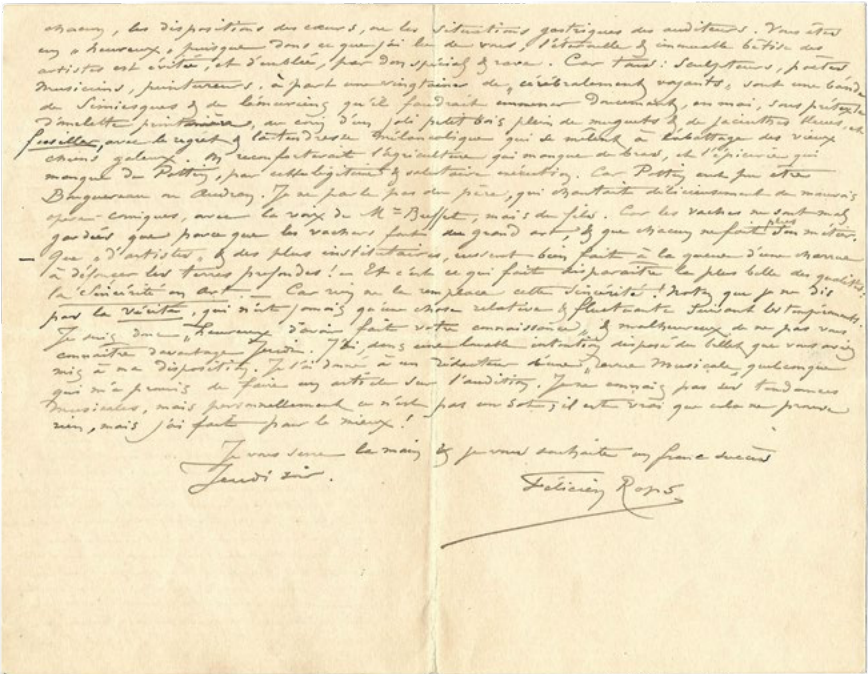 chacun, les dispositions des cœurs, ou les situations gastriques des auditeurs. Vous êtes
un „heureux„ puisque dans ce que j'ai lu de vous, l'éternelle & immuable bêtise des
artistes est évitée, et d'emblée, par don spécial & rare. Car tous : sculpteurs, poètes
musiciens, peintureurs, à part une vingtaine de „cérébralement voyants„ sont une bande
de Simiesques & de lémuriens qu'il faudrait emmener doucement, en mai, sous prétexte
d'omelette printanière, au coin d'un joli petit bois plein de muguets & de jacinthes bleues, et
fusiller, avec le regret & la tendresse mélancolique qui se mêlent à l'abattage des vieux
chiens galeux. On reconforterait l'agriculture qui manque de bras, et l'épicerie qui
manque de Potin, par cette légitime & salutaire exécution. Car Potin eut pu être
Bouguereau ou Audran. Je ne parle pas du père, qui chantait délicieusement de mauvais
opéra-comiques, avec la voix de Mme Buffet, mais du fils. Car les vaches ne sont mal
gardées que parce que les vachers font du grand art, & que chacun ne fait plus son métier.
– Que d'„artistes„ & des plus institutaires, eussent bien fait à la queue d'une charrue
à défoncer les terres profondes ! – Et c'est ce qui fait disparaître la plus belle des qualités
la Sincérité en Art – Car rien ne la remplace cette sincérité ! Notez que je ne dis
pas la vérité, qui n'est jamais qu'une chose relative & fluctuante suivant les tempéraments.
Je suis donc „heureux d'avoir fait votre connaissance„ & malheureux de ne pas vous
connaître davantage Jeudi. J'ai, dans une louable intention disposé du billet que vous aviez
mis à ma disposition. Je l'ai donné à un rédacteur d'une „revue musicale„ quelconque
qui m'a promis de faire un article sur l'audition. Je ne connais pas ses tendances
musicales, mais personnellement ce n'est pas un sot ; il est vrai que cela ne prouve
rien, mais j'ai fait pour le mieux !
Je vous serre la main & je vous souhaite un franc succès
Jeudi soir.
Félicien Rops